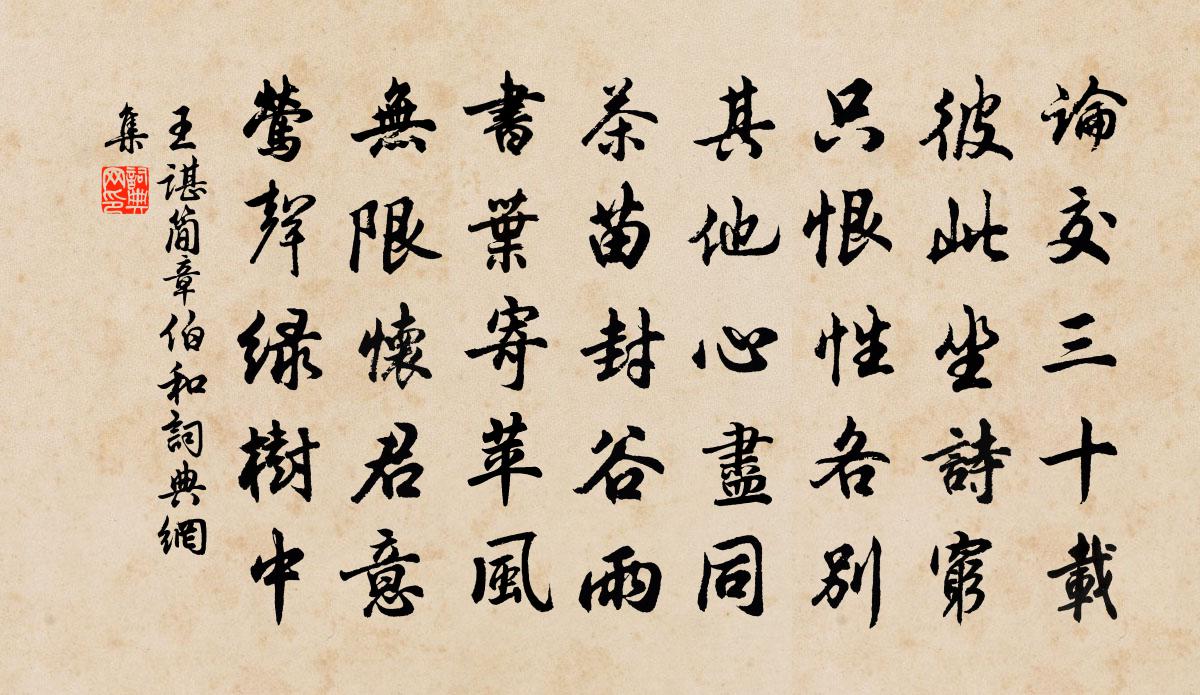 論交三十載
彼此坐詩窮
只恨性各別
其他心盡同
茶苗封谷雨
書葉寄苹風
無限懷君意
鶯聲綠樹中
王諶簡章伯和詞典網
集
詞典
网印